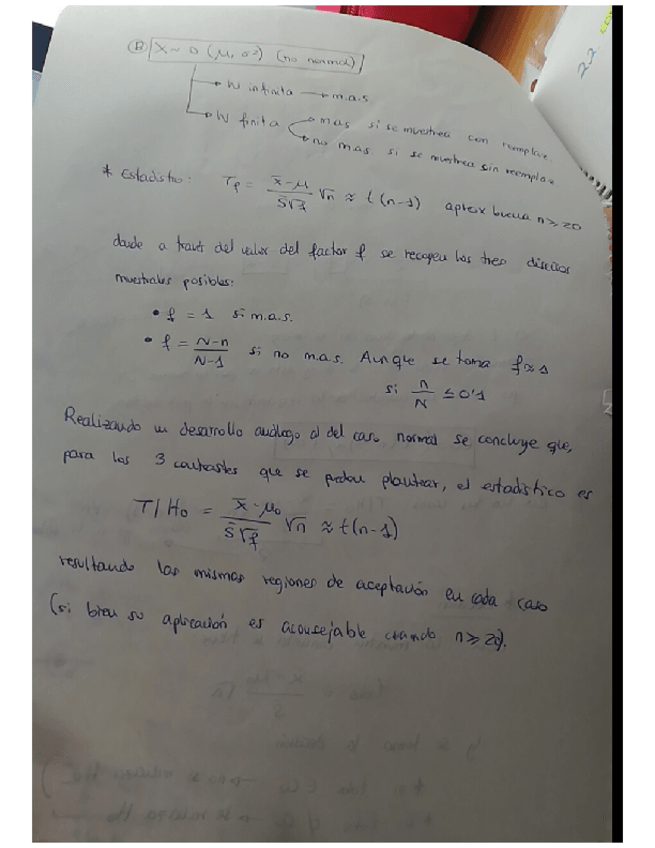 Ⓑ X ~ D (μ, σ²) (no normal)
N infinita → m.a.s
N finita → mas si se muestrea con reemplaz.
→ no mas si se muestrea sin reemplaz
* Estadístico: T_f = (x̄-μ)/(S̄√f) √n ≈ t(n-1) aprox buena n ≥ 20
donde a través del valor del factor f se recogen los tres diseños
muestrales posibles:
• f = 1 si m.a.s.
• f = (N-n)/(N-1) si no m.a.s. Aunque se toma f ≈ 1
si n/N ≤ 0'1
Realizando un desarrollo análogo al del caso normal se concluye que,
para los 3 contrastes que se pueden plantear, el estadístico es
T/H₀ = (x̄-μ₀)/(S̄√f) √n ≈ t(n-1)
resultando las mismas regiones de aceptación en cada caso
(si bien su aplicación es aconsejable cuando n ≥ 20).